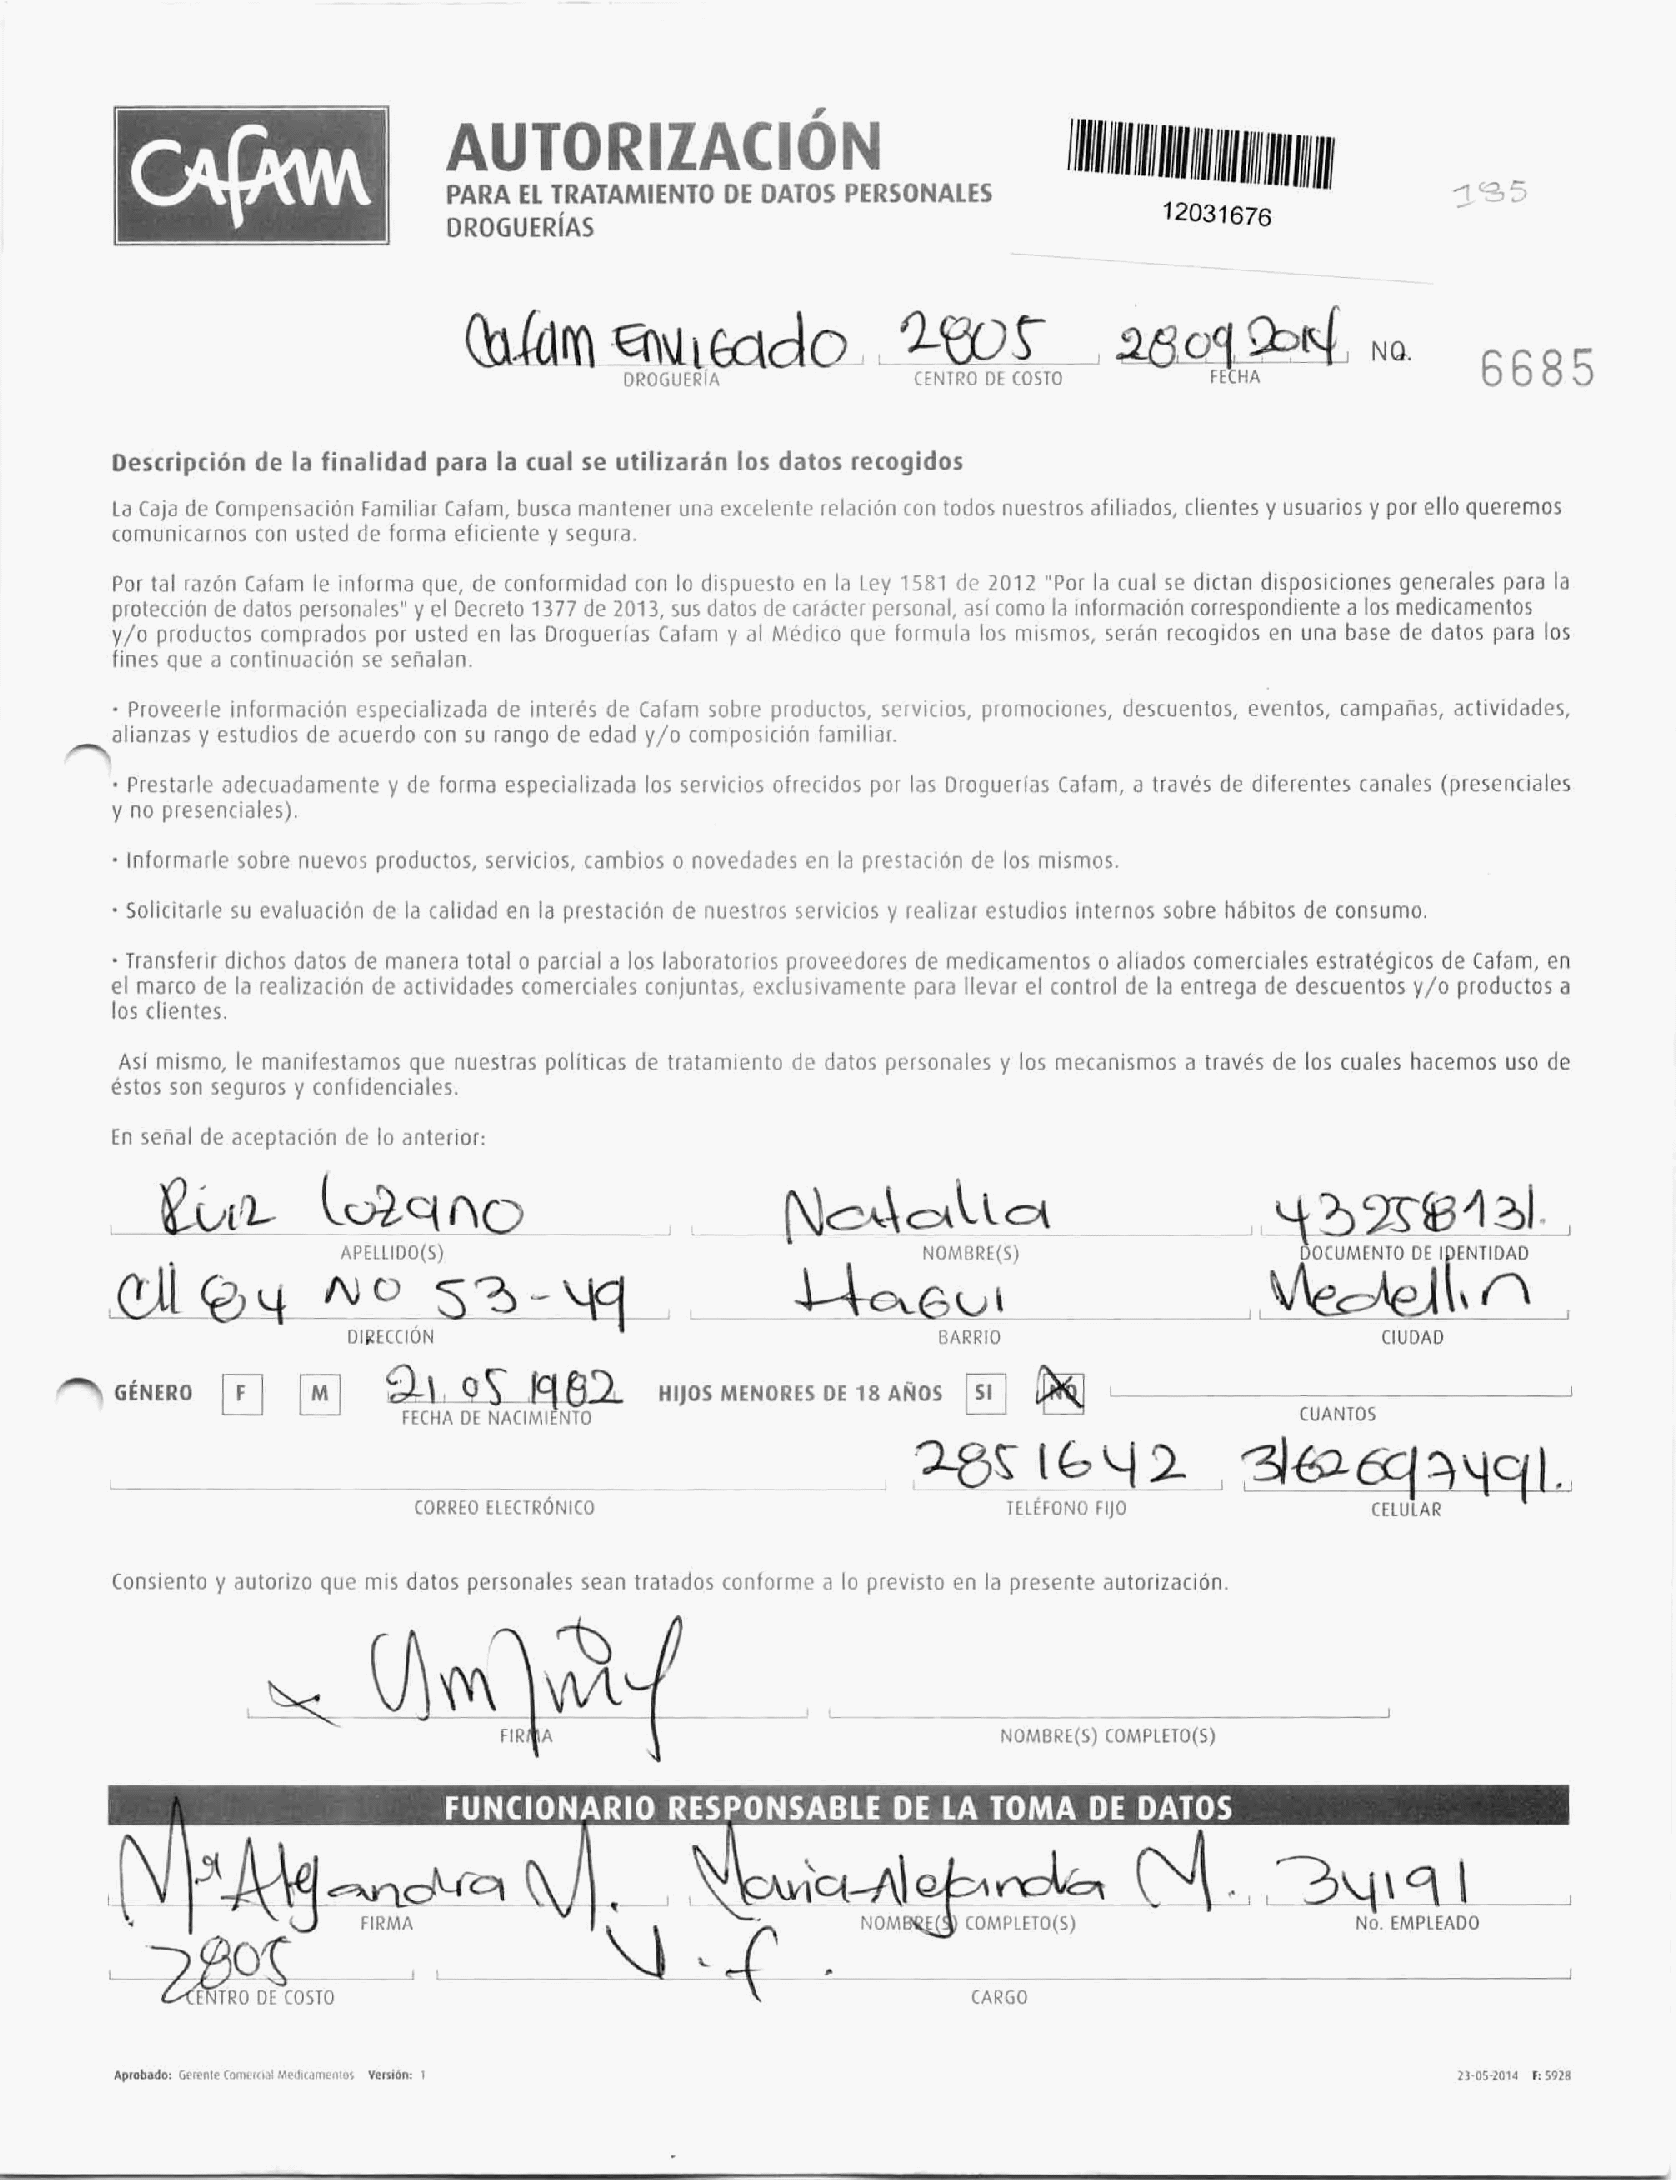 CAFAM
AUTORIZACIÓN
PARA EL TRATAMIENTO DE DATOS PERSONALES
DROGUERÍAS
12031676
195
Cafam Envigado 2805 28.09.2014 NO. 6685
DROGUERÍA CENTRO DE COSTO FECHA
Descripción de la finalidad para la cual se utilizarán los datos recogidos
La Caja de Compensación Familiar Cafam, busca mantener una excelente relación con todos nuestros afiliados, clientes y usuarios y por ello queremos
comunicarnos con usted de forma eficiente y segura.
Por tal razón Cafam le informa que, de conformidad con lo dispuesto en la Ley 1581 de 2012 "Por la cual se dictan disposiciones generales para la
protección de datos personales" y el Decreto 1377 de 2013, sus datos de carácter personal, así como la información correspondiente a los medicamentos
y/o productos comprados por usted en las Droguerías Cafam y al Médico que formula los mismos, serán recogidos en una base de datos para los
fines que a continuación se señalan.
· Proveerle información especializada de interés de Cafam sobre productos, servicios, promociones, descuentos, eventos, campañas, actividades,
alianzas y estudios de acuerdo con su rango de edad y/o composición familiar.
· Prestarle adecuadamente y de forma especializada los servicios ofrecidos por las Droguerías Cafam, a través de diferentes canales (presenciales
y no presenciales).
· Informarle sobre nuevos productos, servicios, cambios o novedades en la prestación de los mismos.
· Solicitarle su evaluación de la calidad en la prestación de nuestros servicios y realizar estudios internos sobre hábitos de consumo.
· Transferir dichos datos de manera total o parcial a los laboratorios proveedores de medicamentos o aliados comerciales estratégicos de Cafam, en
el marco de la realización de actividades comerciales conjuntas, exclusivamente para llevar el control de la entrega de descuentos y/o productos a
los clientes.
Así mismo, le manifestamos que nuestras políticas de tratamiento de datos personales y los mecanismos a través de los cuales hacemos uso de
éstos son seguros y confidenciales.
En señal de aceptación de lo anterior:
Ruiz Lozano Natalia 43258131.
APELLIDO(S) NOMBRE(S) DOCUMENTO DE IDENTIDAD
Cll 84 NO 53-49 Itagui Medellin
DIRECCIÓN BARRIO CIUDAD
GÉNERO F M 21.05 1982 HIJOS MENORES DE 18 AÑOS SI NO
FECHA DE NACIMIENTO CUANTOS
2851642 3162697491.
CORREO ELECTRÓNICO TELÉFONO FIJO CELULAR
Consiento y autorizo que mis datos personales sean tratados conforme a lo previsto en la presente autorización.
FIRMA NOMBRE(S) COMPLETO(S)
FUNCIONARIO RESPONSABLE DE LA TOMA DE DATOS
Mª Alejandra M. Maria Alejandra M. 34191
FIRMA NOMBRE(S) COMPLETO(S) No. EMPLEADO
2805 V.f.
CENTRO DE COSTO CARGO
Aprobado: Gerente Comercial Medicamentos Versión: 1 23-05-2014 F: 5928